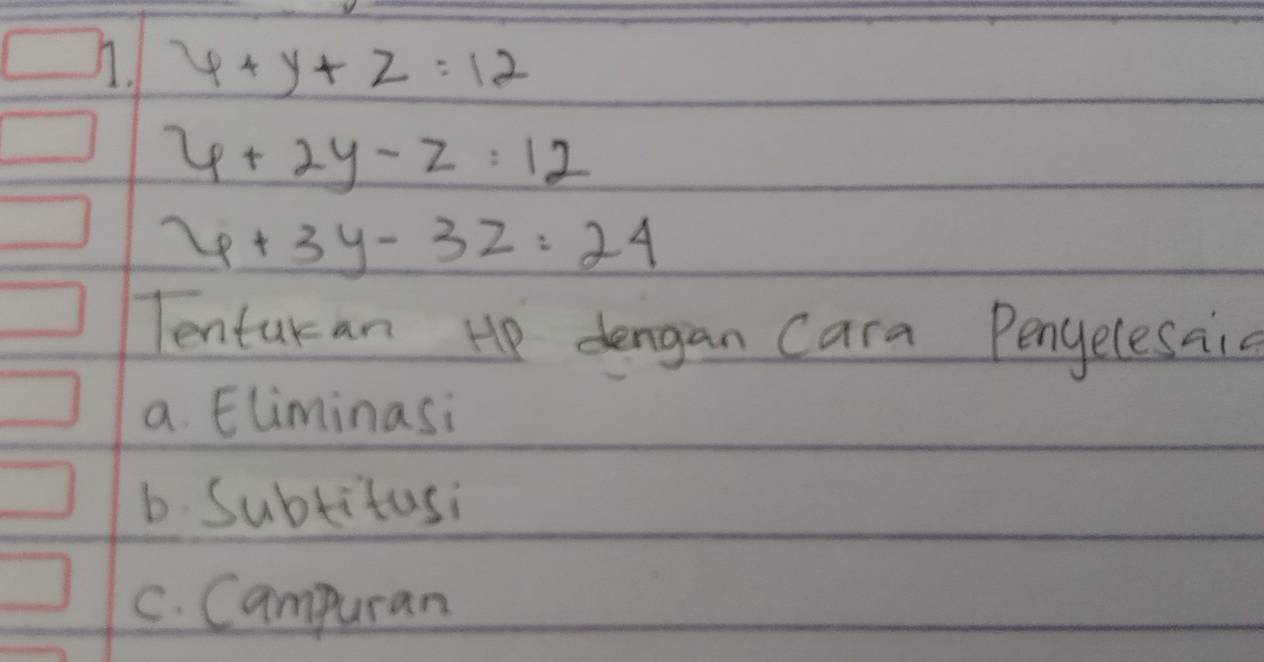 1. x + y + z = 12
x + 2y - z = 12
x + 3y - 3z = 24
Tentukan HP dengan Cara Penyelesaia
a. Eliminasi
b. Subtitusi
c. Campuran